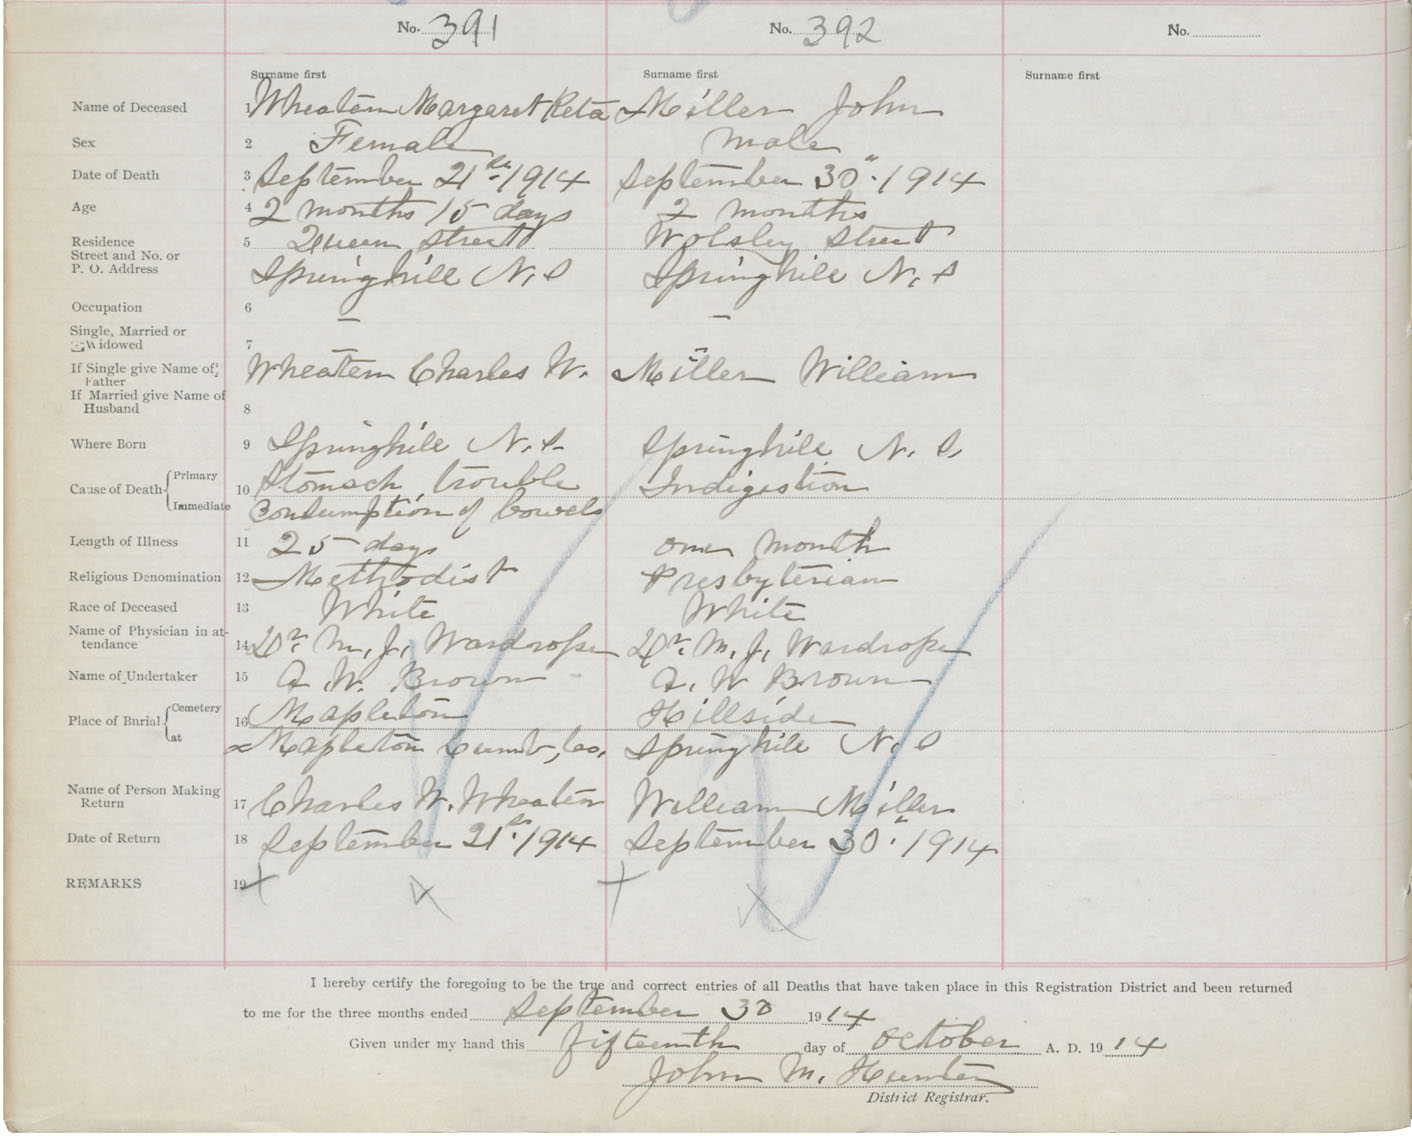 No. 391 No. 392 No.
Surname first Surname first Surname first
Name of Deceased 1 Wheaton Margaret Reta Miller John
Sex 2 Female Male
Date of Death 3 September 21st 1914 September 30" 1914
Age 4 2 months 15 days 2 months
Residence 5 Queen Street Wolsley Street
Street and No. or
P. O. Address Springhill N. S Springhill N. S
Occupation 6 – –
Single, Married or
Widowed 7
If Single give Name of Wheaton Charles W. Miller William
Father
If Married give Name of
Husband 8
Where Born 9 Springhill N. S. Springhill N. S.
Cause of Death Primary 10 Stomach trouble Indigestion
Immediate Consumption of bowels
Length of Illness 11 25 days one month
Religious Denomination 12 Methodist Presbyterian
Race of Deceased 13 White White
Name of Physician in at-
tendance 14 Dr. M. J. Wardrope Dr. M. J. Wardrope
Name of Undertaker 15 A. W. Brown A. W Brown
Place of Burial Cemetery 16 Mapleton Hillside
at Mapleton Cumb, Co. Springhill N. S
Name of Person Making
Return 17 Charles W. Wheaton William Miller
Date of Return 18 September 21st 1914 September 30" 1914
REMARKS 19
I hereby certify the foregoing to be the true and correct entries of all Deaths that have taken place in this Registration District and been returned
to me for the three months ended September 30 1914
Given under my hand this fifteenth day of October A. D. 1914
John M. Hunter
District Registrar.